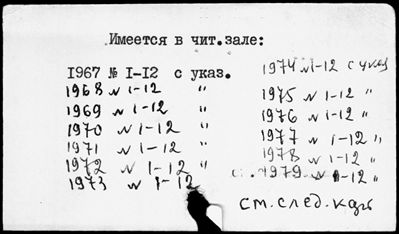 Имеется в чит.зале:
1967 № I-I2 с указ.
1968 № 1-12 "
1969 № 1-12 "
1970 № 1-12 "
1971 № 1-12 "
1972 № 1-12 "
1973 № 1-12
1974 № 1-12 с указ
1975 № 1-12 "
1976 № 1-12 "
1977 № 1-12 "
1978 № 1-12 "
1979 № 1-12 "
см. след. карт